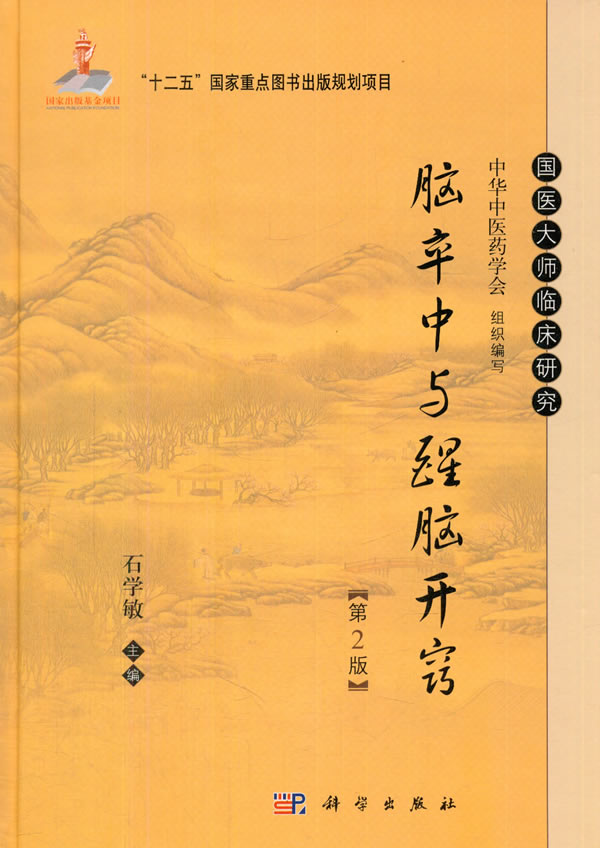 "十二五"国家重点图书出版规划项目
国家出版基金项目
NATIONAL PUBLICATION FOUNDATION
国医大师临床研究
中华中医药学会 组织编写
脑卒中与醒脑开窍
【第2版】
石学敏 主编
SP
科学出版社